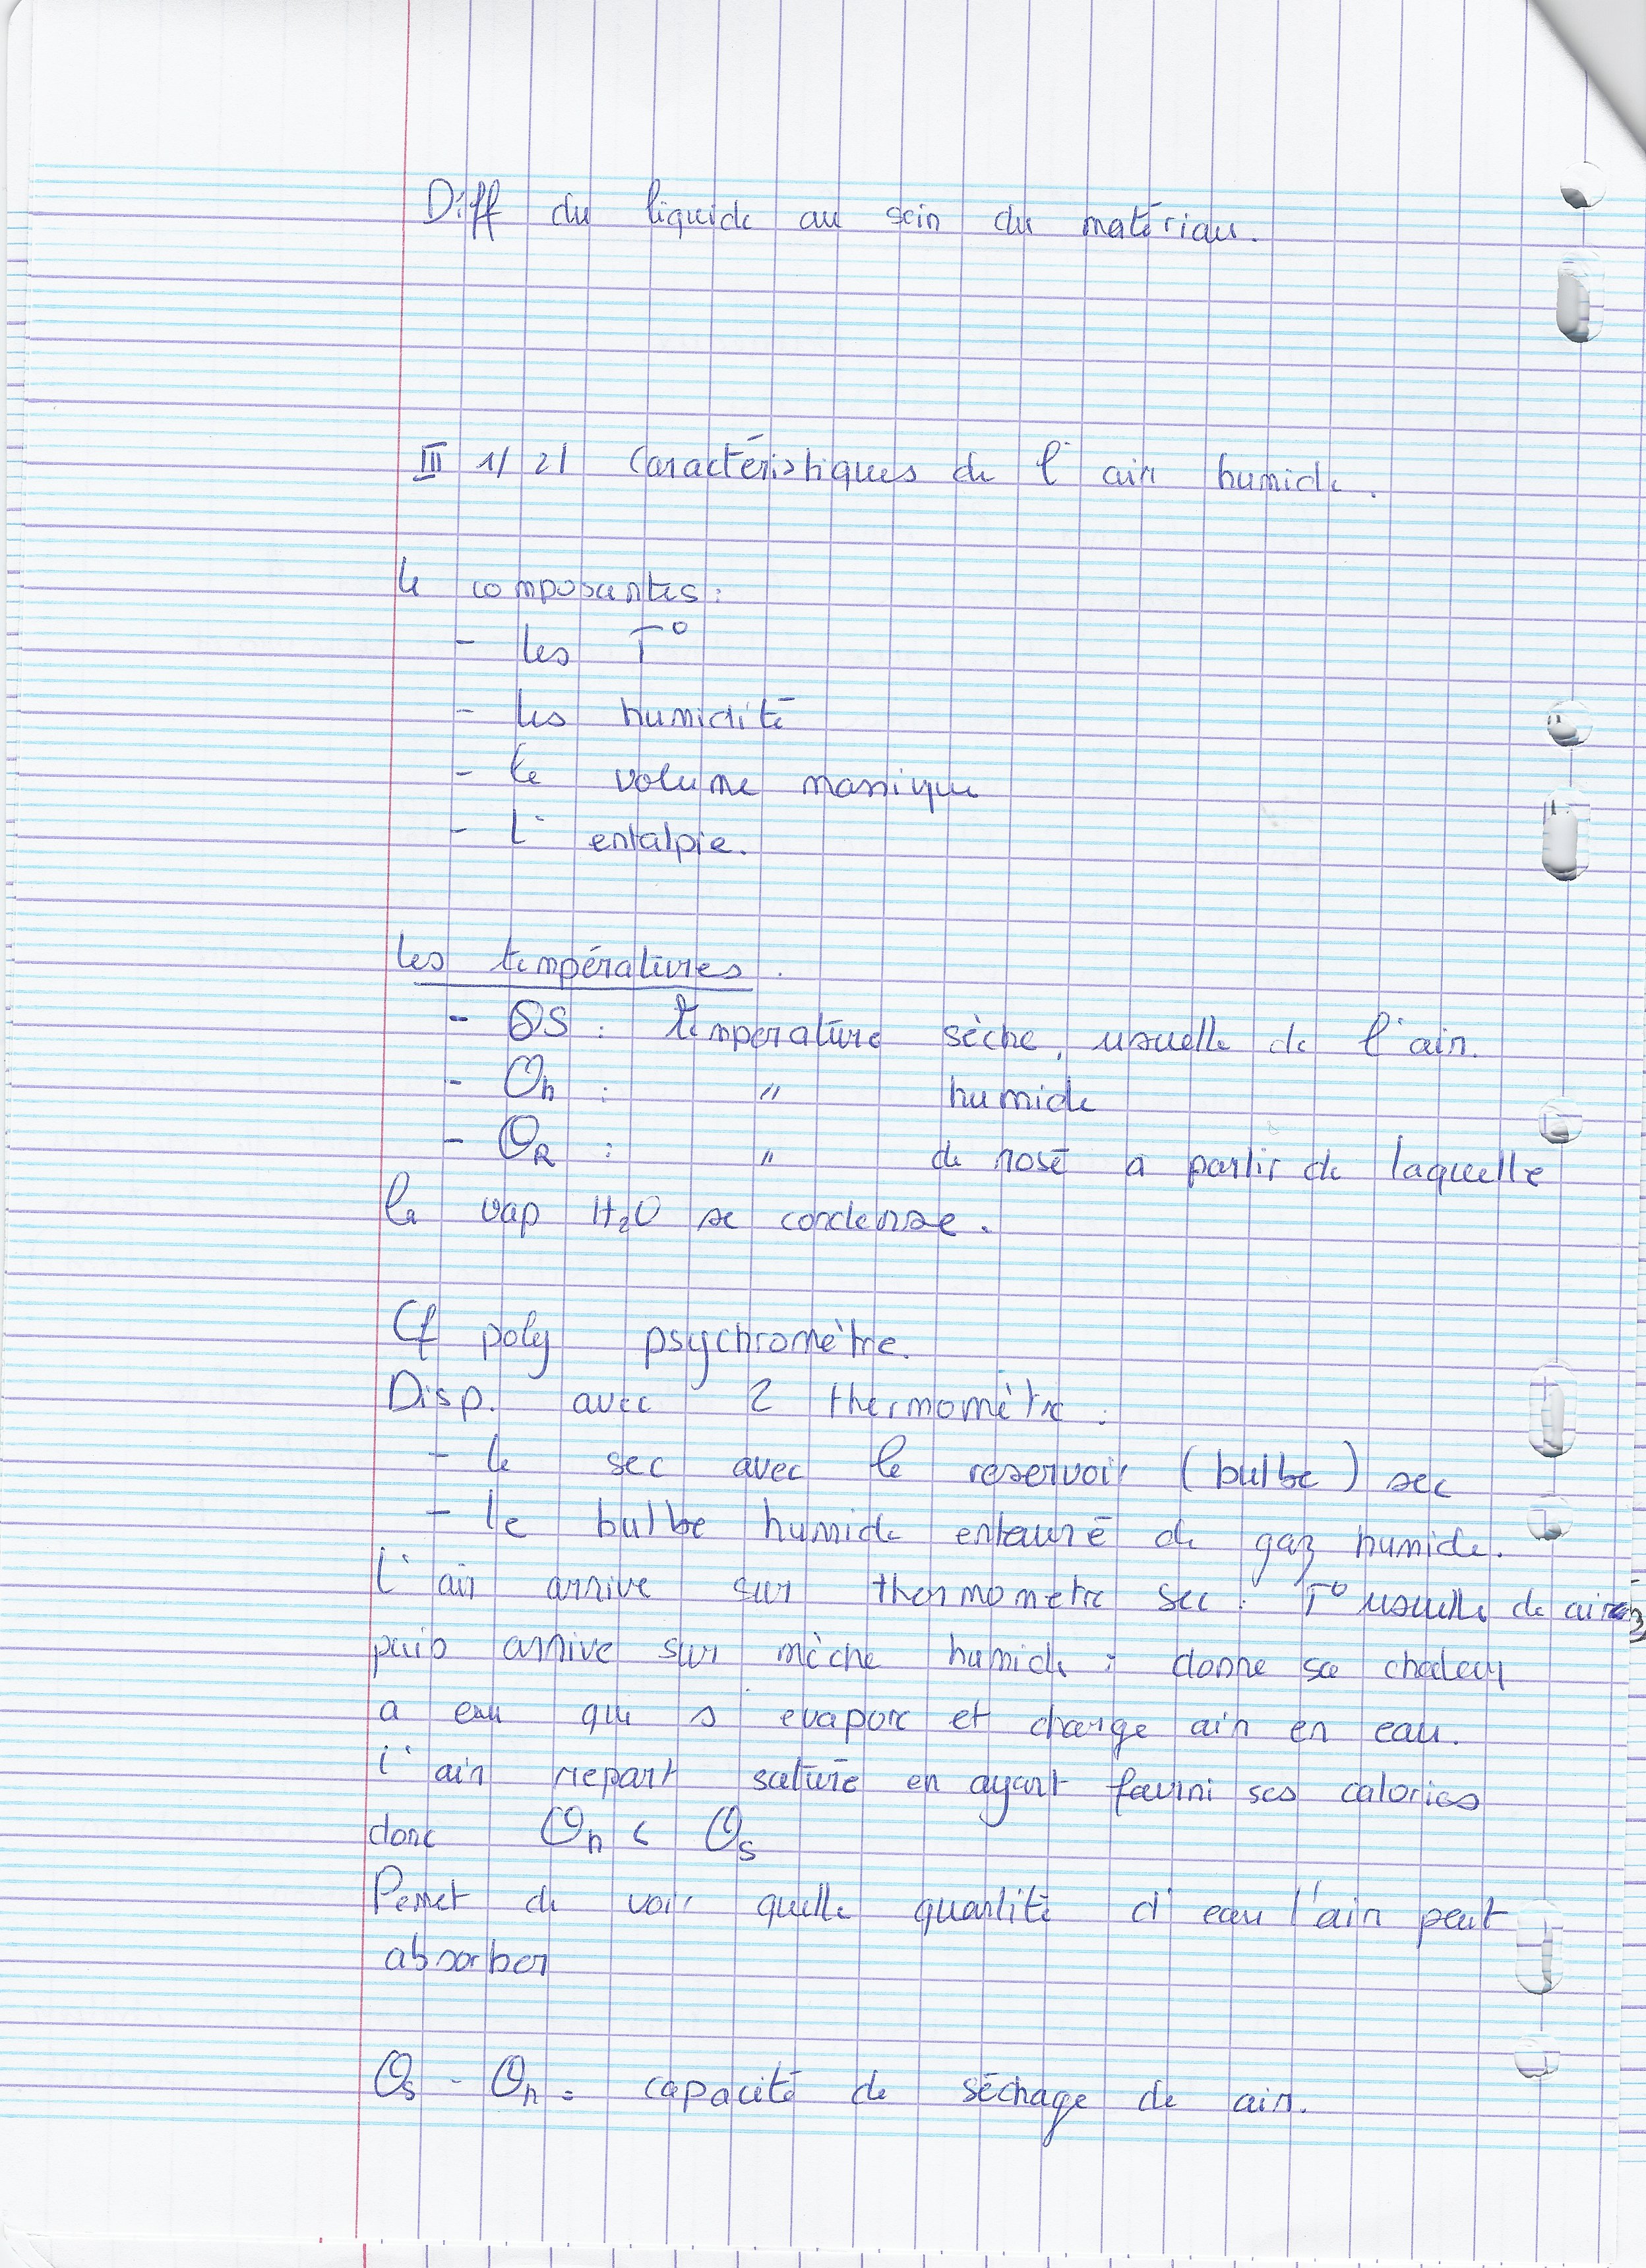 Diff du liquide au sein du matériau.
III 1/ 2/ Caractéristiques de l'air humide.
4 composantes :
- les T°
- les humidité
- le volume massique
- l'entalpie.
Les températures.
- θS : température sèche, usuelle de l'air.
- θh : " humide
- θR : " de rosé a partir de laquelle
la vap H2O se condense.
Cf poly psychromètre.
Disp. avec 2 thermomètre :
- le sec avec le reservoir (bulbe) sec
- le bulbe humide entouré de gaz humide.
L'air arrive sur thermometre sec : T° usuelle de air
puis arrive sur mèche humide : donne sa chaleur
a eau qui s'evapore et charge air en eau.
L'air repart saturé en ayant fourni ses calories
donc θh < θs
Permet de voir quelle quantité d'eau l'air peut
absorber
θs - θh = capacité de séchage de air.